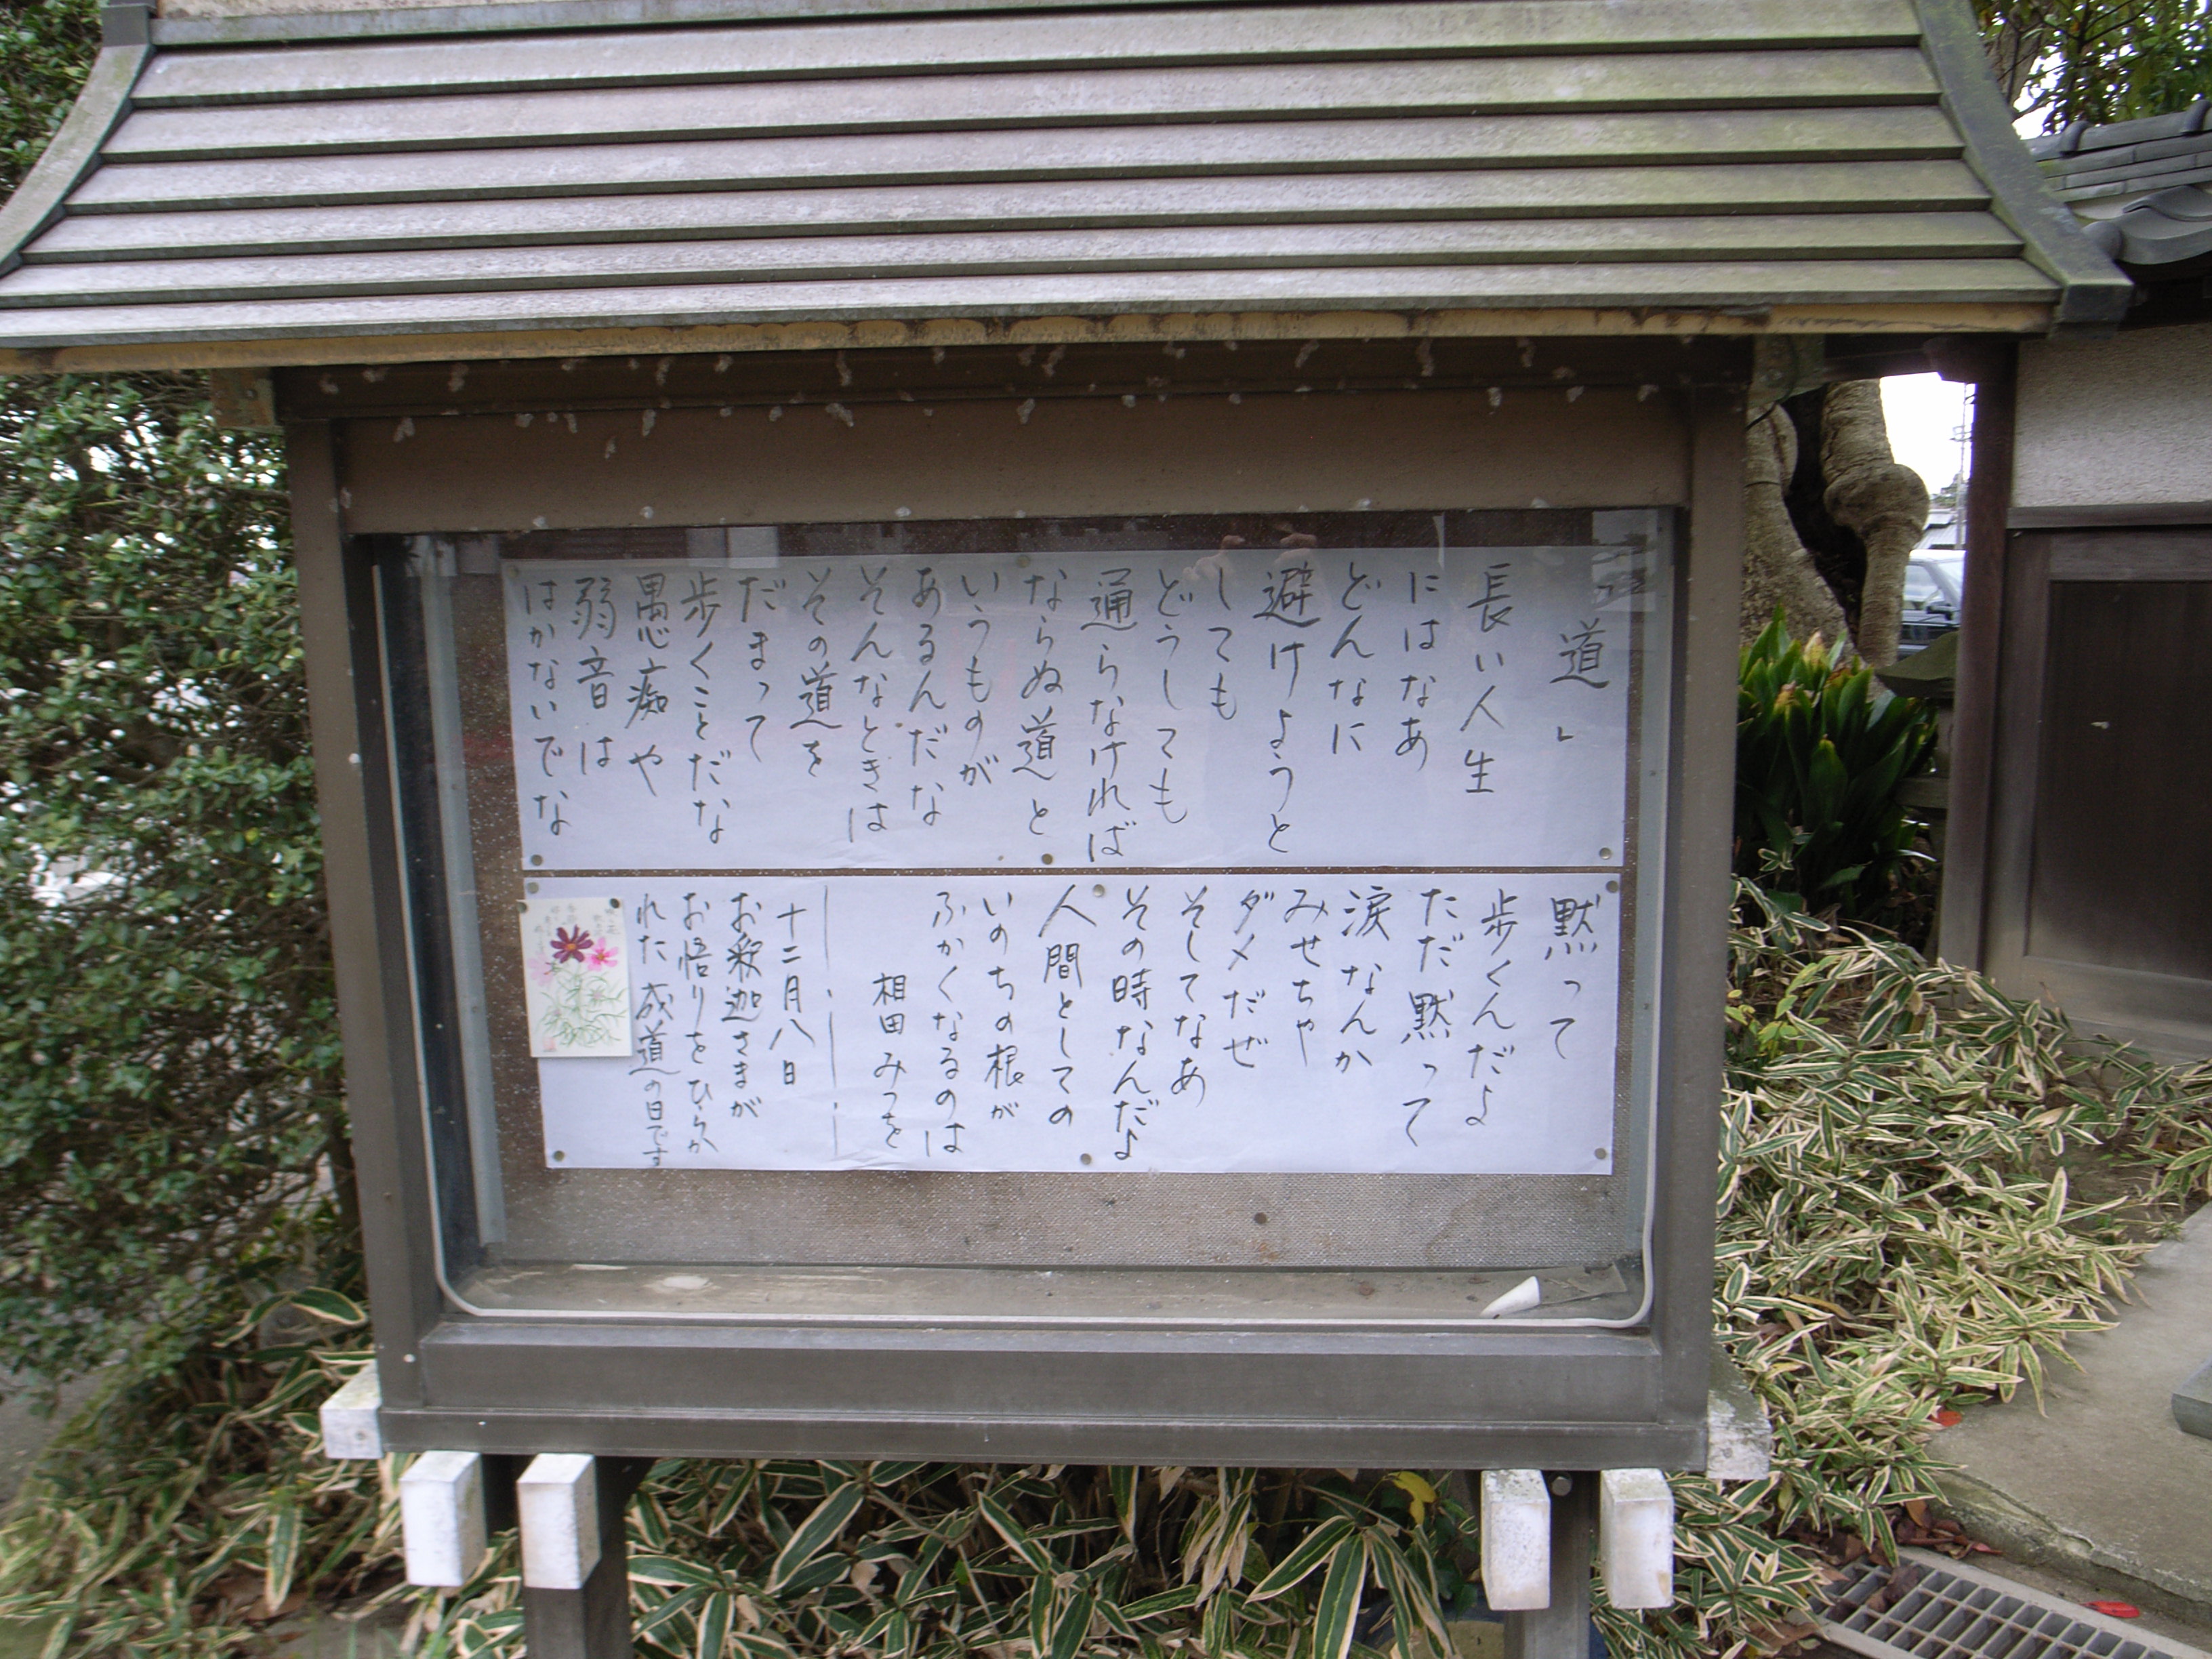 「道」
長い人生
にはなあ
どんなに
避けようと
しても
どうしても
通らなければ
ならぬ道と
いうものが
あるんだな
そんなときは
その道を
だまって
歩くことだな
愚痴や
弱音は
はかないでな
黙って
歩くんだよ
ただ黙って
涙なんか
みせちゃ
ダメだぜ
そしてなあ
その時なんだよ
人間としての
いのちの根が
ふかくなるのは
相田みつを
十二月八日
お釈迦さまが
お悟りをひらか
れた成道の日です